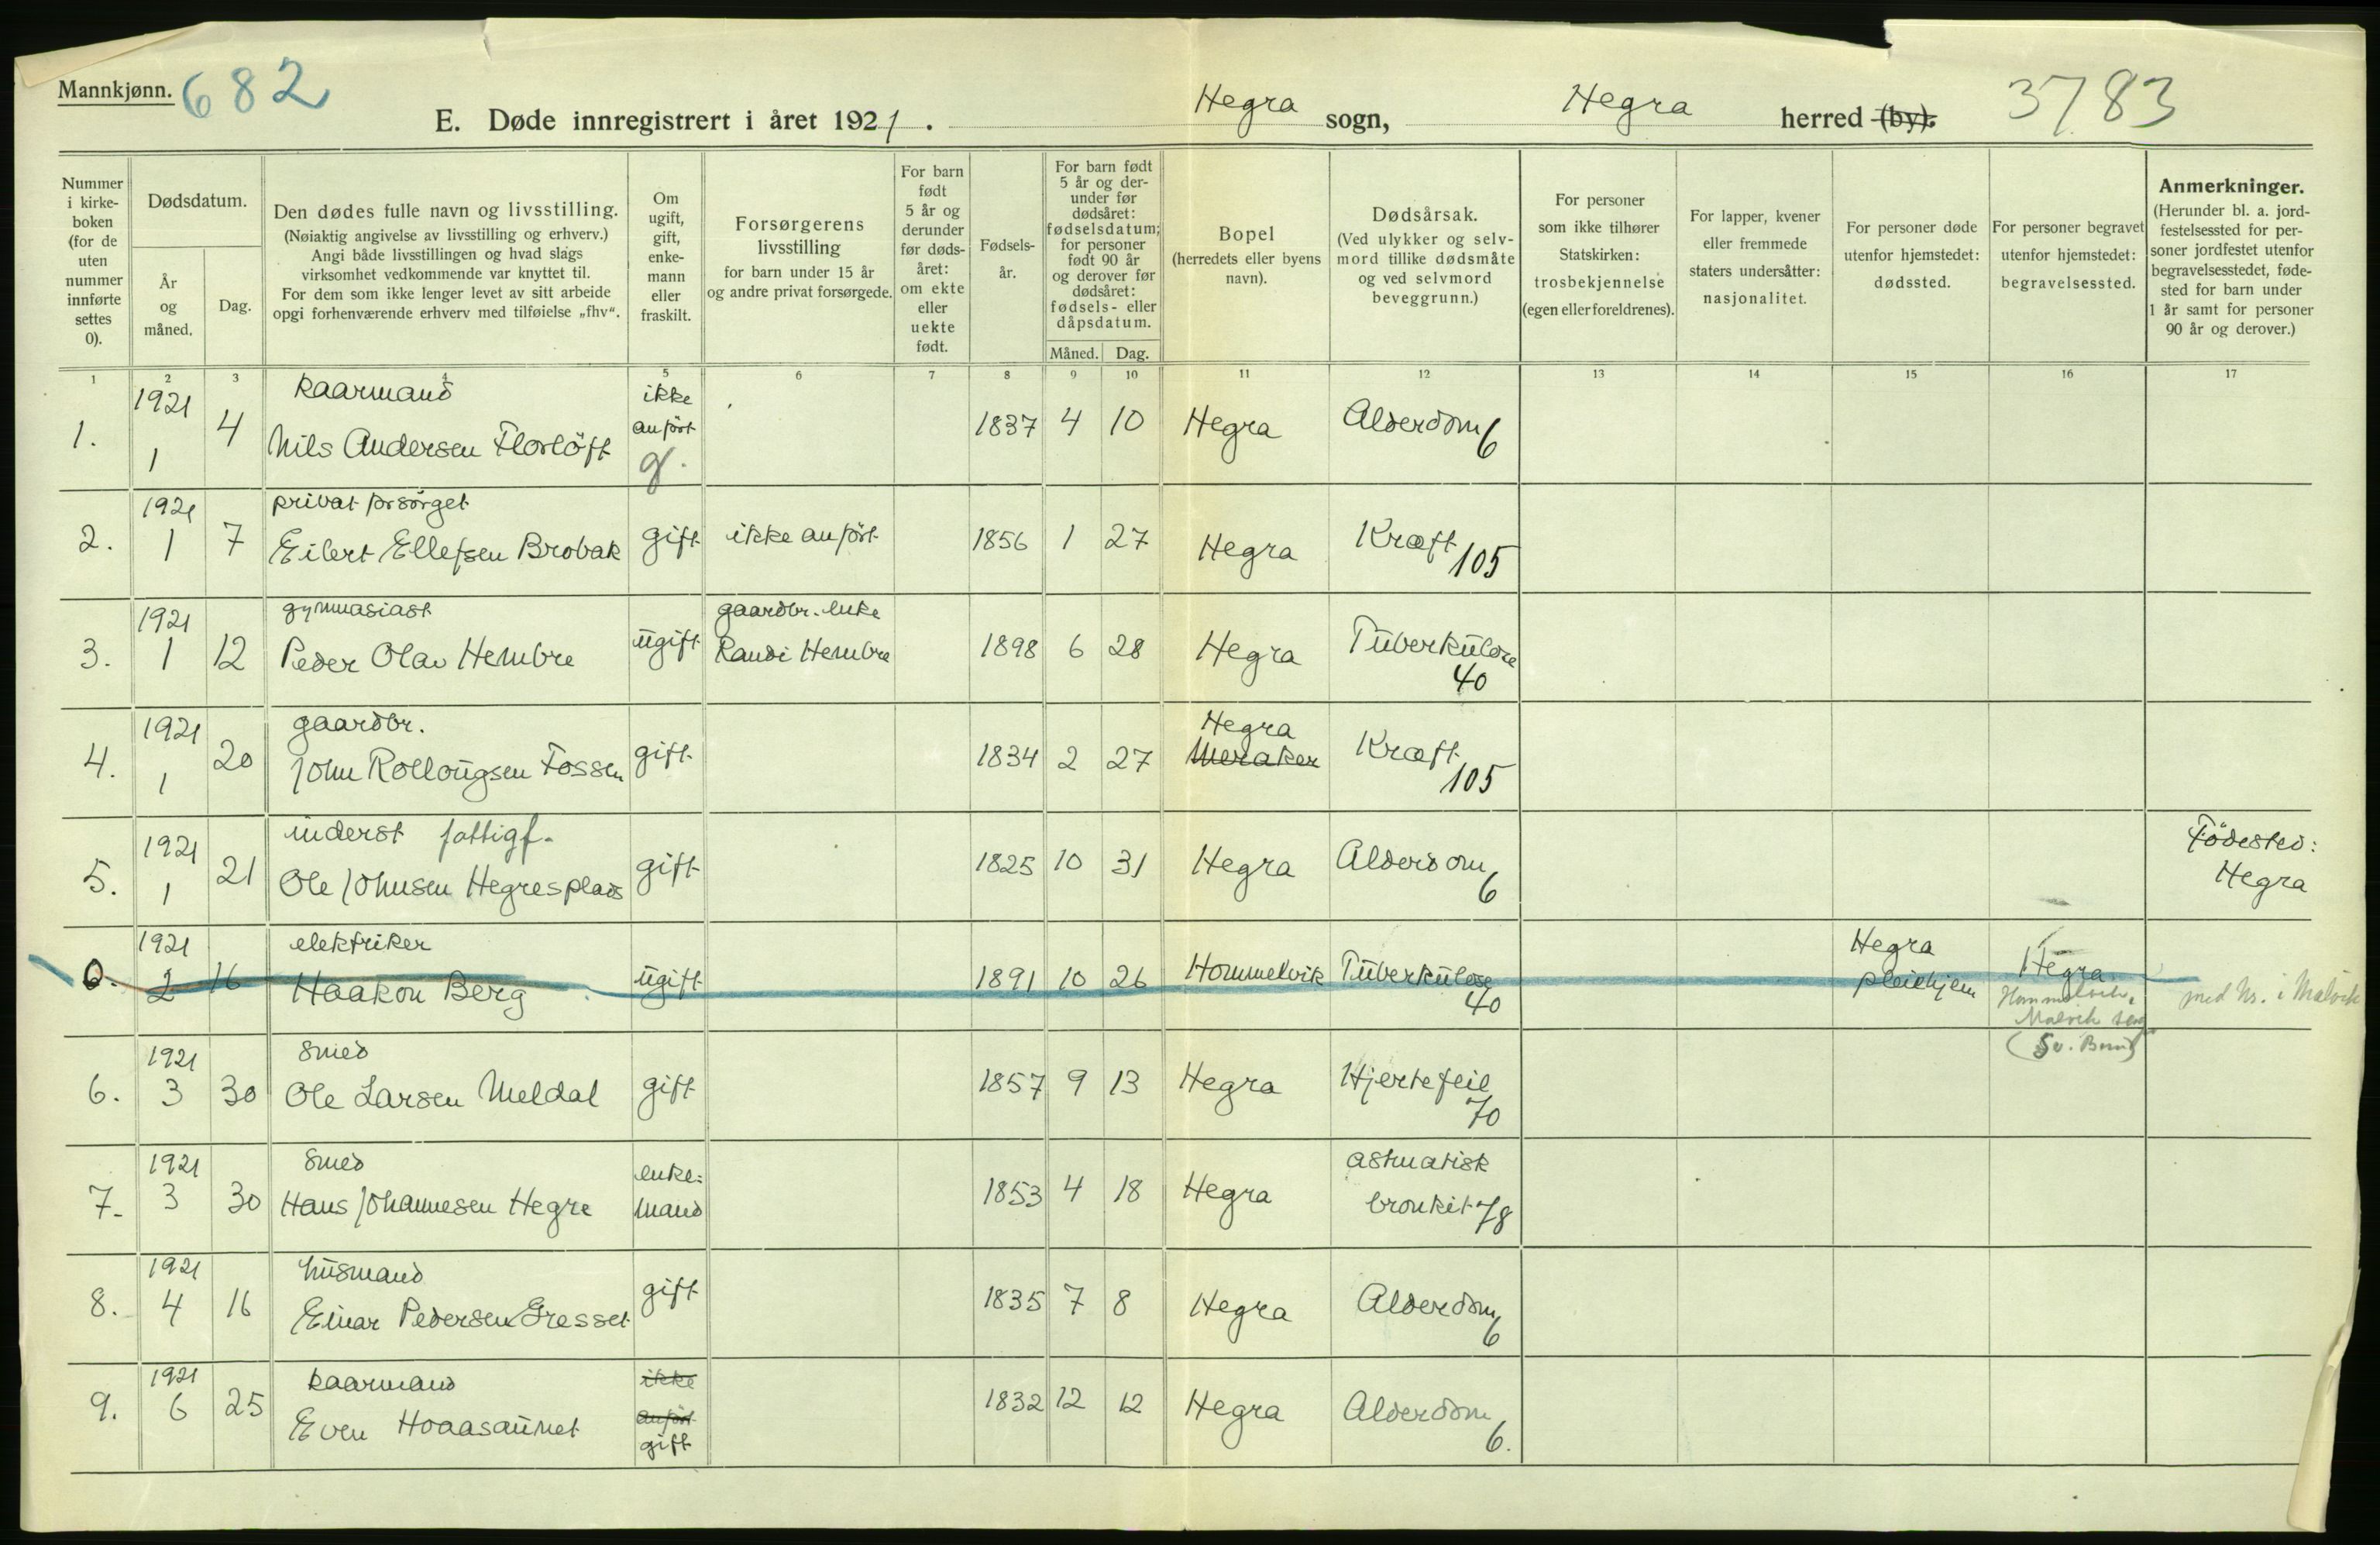 Mannkjønn. 682
E. Døde innregistrert i året 1921. Hegra sogn, Hegra herred (by). 3783
Nummer i kirkeboken (for de uten nummer innførte settes 0).
Dødsdatum.
År og måned.
Dag.
Den dødes fulle navn og livsstilling.
(Nøiaktig angivelse av livsstilling og erhverv.)
Angi både livsstillingen og hvad slags
virksomhet vedkommende var knyttet til.
For dem som ikke lenger levet av sitt arbeide
opgi forhenværende erhverv med tilføielse „fhv“.
Om ugift, gift, enkemann eller fraskilt.
Forsørgerens livsstilling
for barn under 15 år
og andre privat forsørgede.
For barn født 5 år og derunder før dødsåret: om ekte eller uekte født.
Fødselsår.
For barn født 5 år og derunder før dødsåret: fødselsdatum; for personer født 90 år og derover før dødsåret: fødsels- eller dåpsdatum.
Måned. Dag.
Bopel
(herredets eller byens navn).
Dødsårsak.
(Ved ulykker og selvmord tillike dødsmåte og ved selvmord beveggrunn.)
For personer som ikke tilhører Statskirken: trosbekjennelse (egen eller foreldrenes).
For lapper, kvener eller fremmede staters undersåtter: nasjonalitet.
For personer døde utenfor hjemstedet: dødssted.
For personer begravet utenfor hjemstedet: begravelsessted.
Anmerkninger.
(Herunder bl. a. jordfestelsessted for personer jordfestet utenfor begravelsesstedet, fødested for barn under 1 år samt for personer 90 år og derover.)
1 2 3 4 5 6 7 8 9 10 11 12 13 14 15 16 17
1. 1921 1 4 Kaarmand
Nils Andersen Florløft ikke anført g. 1837 4 10 Hegra Alderdom 6
2. 1921 1 7 privat forsørget
Eilert Ellefsen Brobak gift ikke anført 1856 1 27 Hegra Kræft 105
3. 1921 1 12 gymnasiast
Peder Olav Hembre ugift gaardbr. enke
Randi Hembre 1898 6 28 Hegra Tuberkulose 40
4. 1921 1 20 gaardbr.
John Rollougsen Fossen gift 1834 2 27 Hegra
Meraker Kræft 105
5. 1921 1 21 inderst fattigf.
Ole Johnsen Hegresplads gift 1825 10 31 Hegra Alderdom 6 Fødested:
Hegra
0. 1921 2 16 elektriker
Haakon Berg ugift 1891 10 26 Hommelvik Tuberkulose 40 Hegra
pleiehjem Hegra
Hommelvik,
Malvik sogn
med Nr. i Malvik
6. 1921 3 30 Smed
Ole Larsen Meldal gift 1857 9 13 Hegra Hjertefeil 70
7. 1921 3 30 Smed
Hans Johannesen Hegre enke=
mand 1853 4 18 Hegra astmatisk
bronkit 78
8. 1921 4 16 husmand
Einar Pedersen Gresset gift 1835 7 8 Hegra Alderdom 6
9. 1921 6 25 Kaarmand
Even Hoaasaunet ikke anført gift 1832 12 12 Hegra Alderdom 6.